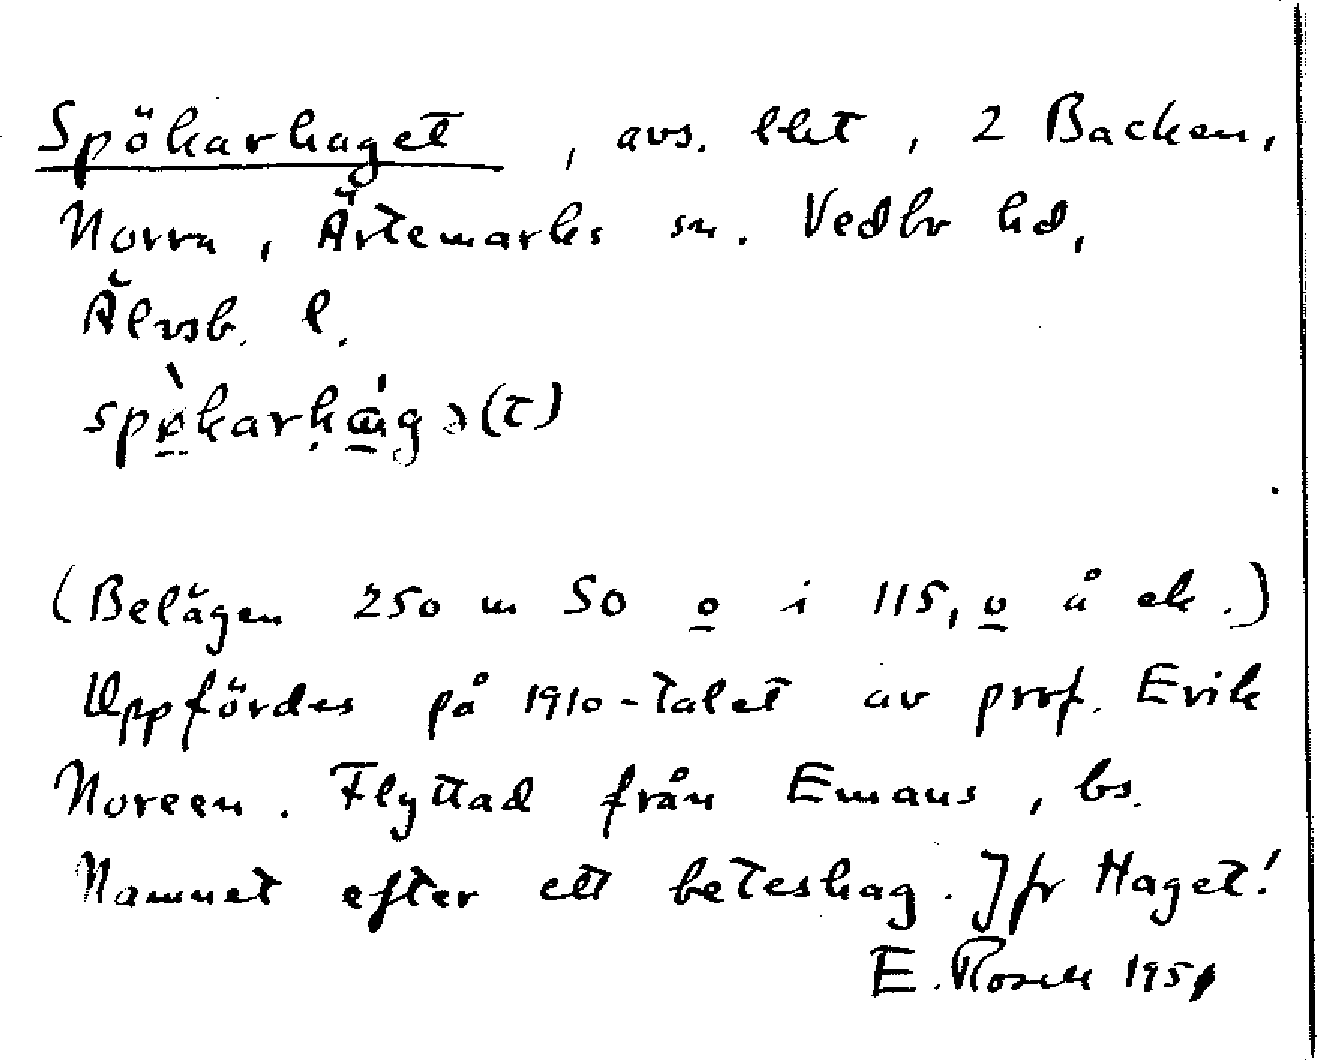 Spökarhaget, avs. lht, 2 Backen,
Norra, Ärtemarks sn. Vedbo hd,
Älvsb. l.
spø̀karhág ə(t)
(Belägen 250 m SO o i 115,0 å ek.)
Uppfördes på 1910-talet av prof. Erik
Noreen. Flyttad från Emaus, bs.
Namnet efter ett beteshag. Jfr Haget!
E. Rosell 1951